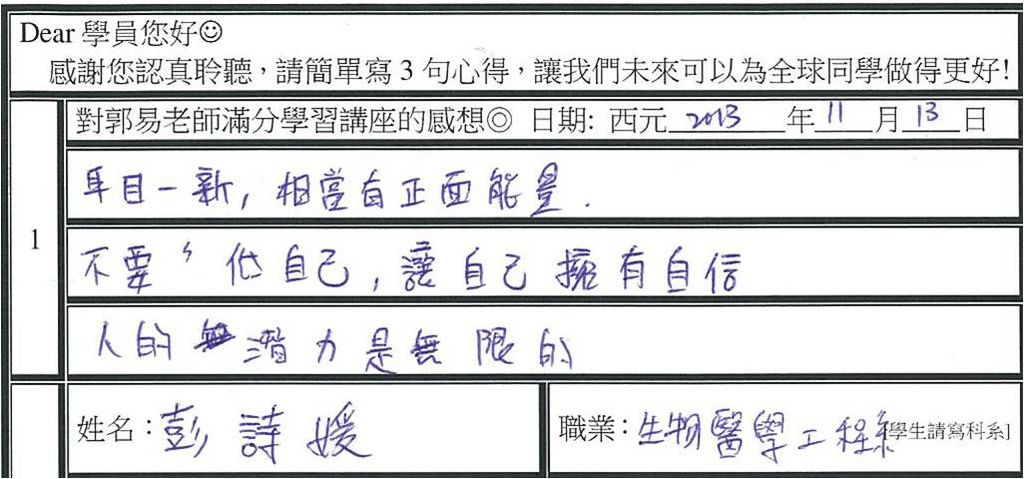 Dear 學員您好☺
感謝您認真聆聽，請簡單寫 3 句心得，讓我們未來可以為全球同學做得更好!
對郭易老師滿分學習講座的感想◎ 日期: 西元 2013 年 11 月 13 日
1
耳目一新, 相當有正面能量.
不要ㄅ低自己, 讓自己擁有自信
人的潛力是無限的
姓名：彭詩媛
職業：生物醫學工程系 [學生請寫科系]